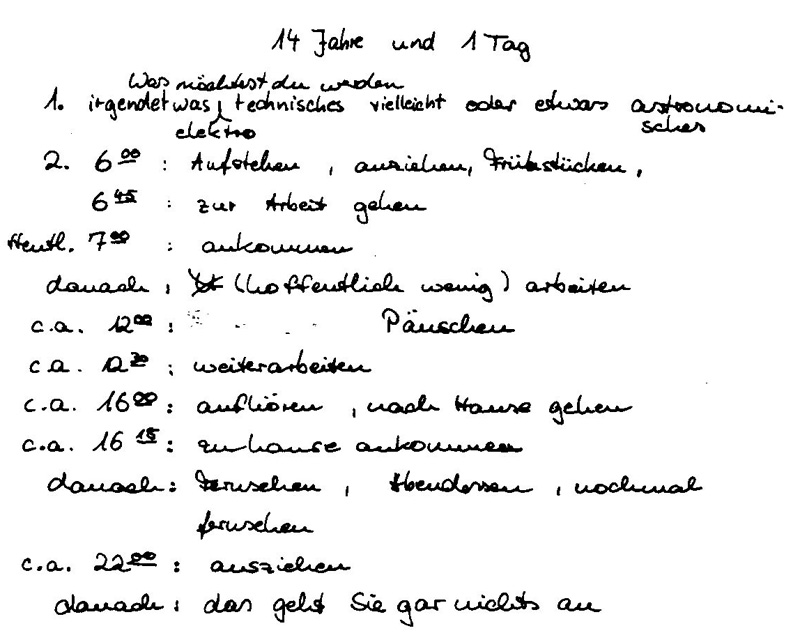 14 Jahre und 1 Tag
Was möchtest du werden
1. irgendetwas technisches vielleicht oder etwas astronomi-
elektro
sches
2. 6 00 : Aufstehen, anziehen, Frühstücken,
6 45 : zur Arbeit gehen
7 00 : ankommen
danach : (hoffentlich wenig) arbeiten
c.a. 12 00 : Päuschen
c.a. 12 30 : weiterarbeiten
c.a. 16 00 : aufhören, nach Hause gehen
c.a. 16 15 : zu hause ankommen
danach : Fernsehen, Abendessen, nochmal
fernsehen
c.a. 22 00 : ausziehen
danach : das geht Sie gar nichts an